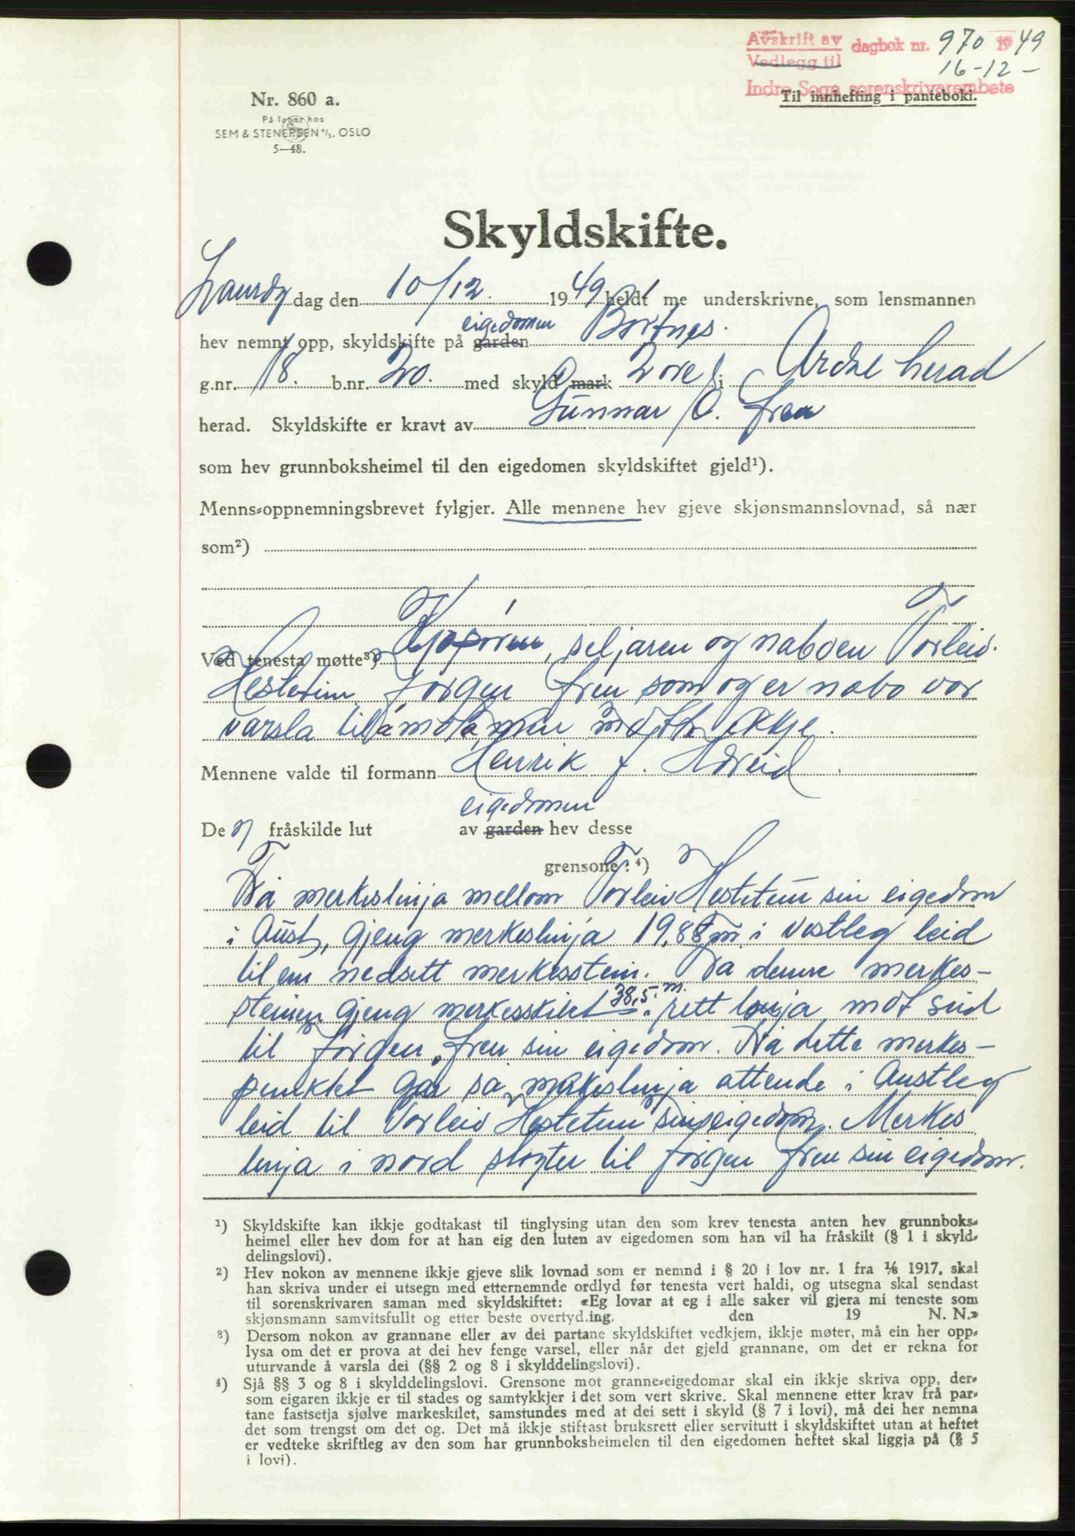 Avskrift av dagbok nr. 970 1949
Vedlegg til 16-12-
Indre Sogn sorenskrivarembete
Til innhefting i pantebok.
Nr. 860 a.
På lager hos
SEM & STENERSEN A/S, OSLO
5—48.
Skyldskifte.
Laurdag dag den 10/12. 1949 heldt me underskrivne, som lensmannen
eigedomen
hev nemnt opp, skyldskifte på garden Bortnes.
g.nr. 18. b.nr. 20. med skyld mark 2 øre i Årdal herad
herad. Skyldskifte er kravt av Gunnar O. Fren
som hev grunnboksheimel til den eigedomen skyldskiftet gjeld¹).
Menns-oppnemningsbrevet fylgjer. Alle mennene hev gjeve skjønsmannslovnad, så nær
som²)
Ved tenesta møtte³) Kjøparen, seljaren og naboen Torleiv
Hestetun Jørgen Fren som og er nabo var
varsla til møte men møtte ikkje.
Mennene valde til formann Henrik J. Hæreid
eigedomen
De n fråskilde lut av garden hev desse
grensone: ⁴)
Frå merkeslinja mellom Torleiv Hestetun sin eigedom
i Aust, gjeng merkeslinja 19,88 m i vestleg leid
til ein nedsett merkesstein. Frå denne merkes-
steinen gjeng merkesskilet 38,5 m. rett linja mot sud
til Jørgen Fren sin eigedom. Frå dette merkes-
punktet går så merkeslinja attende i Austleg
leid til Torleiv Hestetun sin eigedom. Merkes
linja i nord støyter til Jørgen Fren sin eigedom.
¹) Skyldskifte kan ikkje godtakast til tinglysing utan den som krev tenesta anten hev grunnboks-
heimel eller hev dom for at han eig den luten av eigedomen som han vil ha fråskilt (§ 1 i skyld-
delingslovi).
²) Hev nokon av mennene ikkje gjeve slik lovnad som er nemnd i § 20 i lov nr. 1 fra ⅙ 1917, skal
han skriva under ei utsegn med etternemnde ordlyd før tenesta vert haldi, og utsegna skal sendast
til sorenskrivaren saman med skyldskiftet: «Eg lovar at eg i alle saker vil gjera mi teneste som
skjønsmann samvitsfullt og etter beste overtyd.ing. den 19 N. N.»
³) Dersom nokon av grannane eller av dei partane skyldskiftet vedkjem, ikkje møter, må ein her opp-
lysa om det er prova at dei hev fenge varsel, eller når det gjeld grannane, om det er rekna for
uturvande å varsla dei (§§ 2 og 8 i skylddelingslovi).
⁴) Sjå §§ 3 og 8 i skylddelingslovi. Grensone mot granne-eigedomar skal ein ikkje skriva opp, der-
som eigaren ikkje er til stades og samtykkjer i det som vert skrive. Skal mennene etter krav frå par-
tane fastsetja sjølve markeskilet, samstundes med at dei sett i skyld (§ 7 i lovi), må dei her nemna
det som trengst om det og. Det må ikkje stiftast bruksrett eller servitutt i skyldskiftet utan at heftet
er vedteke skriftleg av den som har grunnboksheimelen til den eigedomen heftet skal liggja på (§ 5
i lovi).